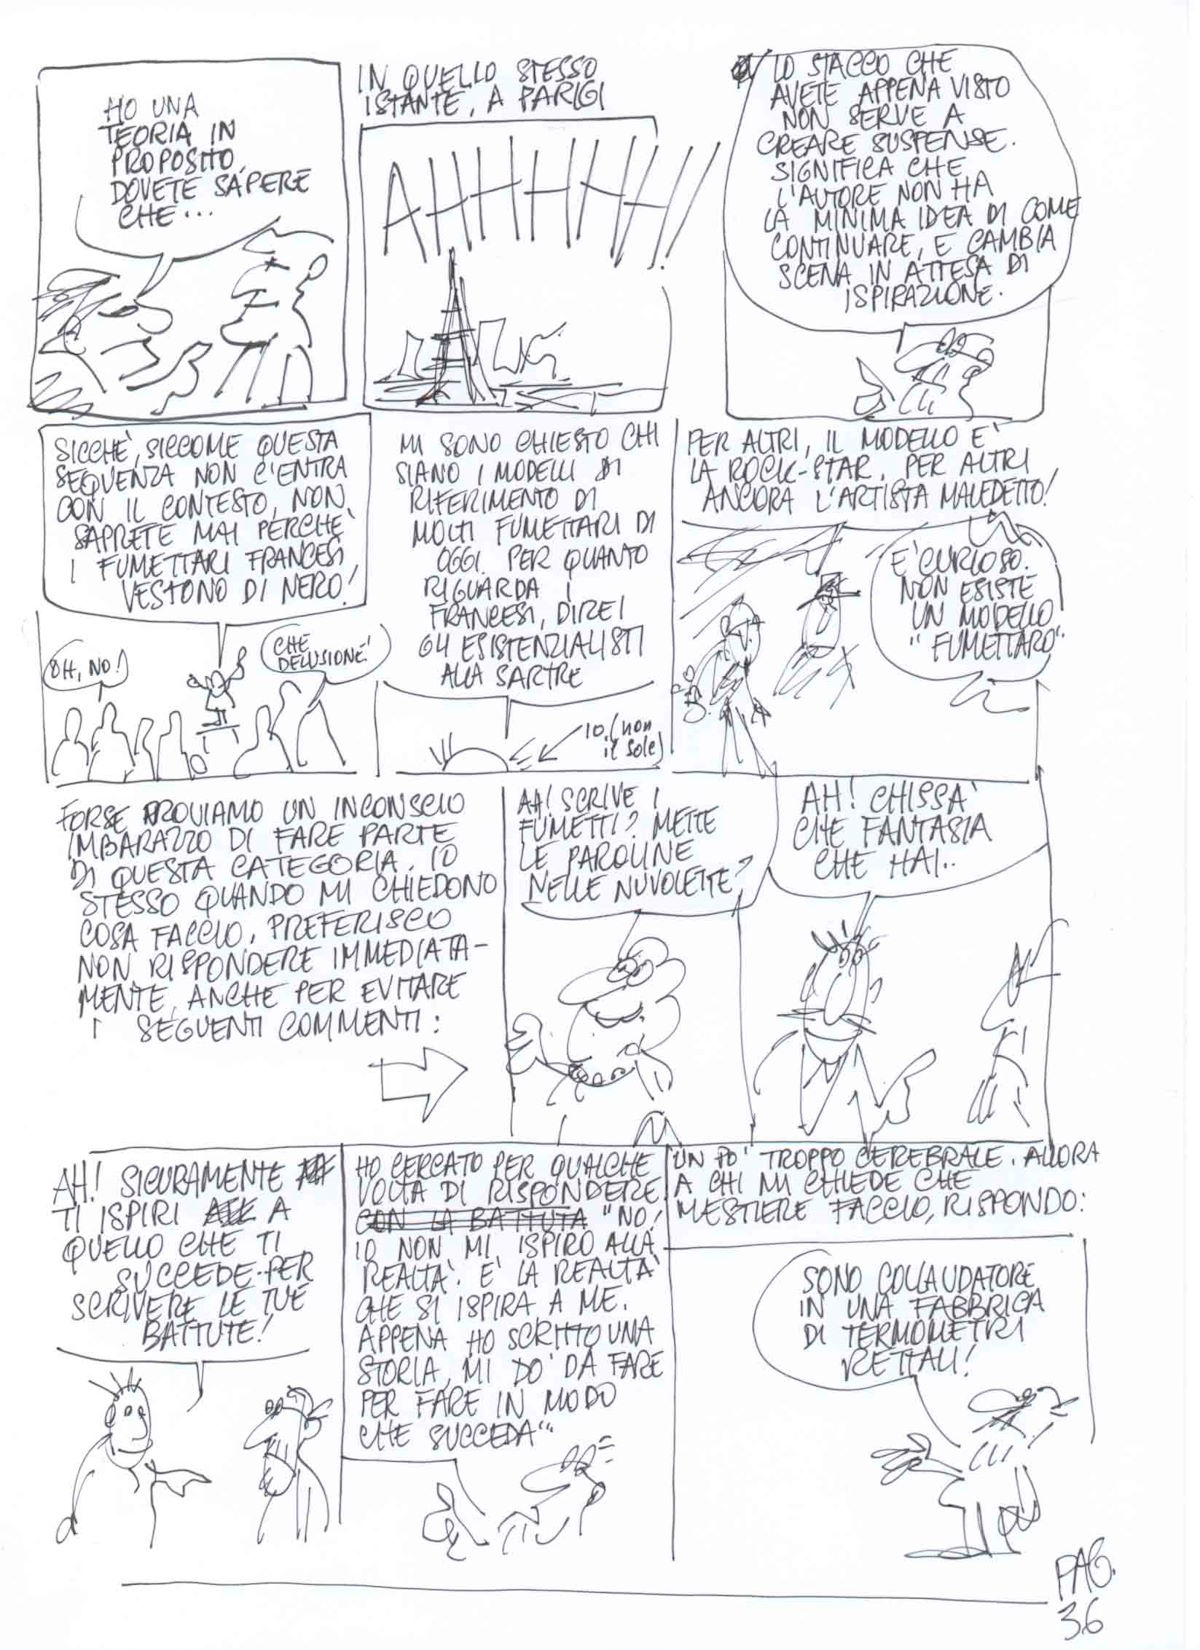 HO UNA
TEORIA IN
PROPOSITO,
DOVETE SAPERE
CHE...
IN QUELLO STESSO
ISTANTE, A PARIGI
AHHHHH!!
LO STACCO CHE
AVETE APPENA VISTO
NON SERVE A
CREARE SUSPENSE.
SIGNIFICA CHE
L'AUTORE NON HA
LA MINIMA IDEA DI COME
CONTINUARE, E CAMBIA
SCENA IN ATTESA DI
ISPIRAZIONE.
SICCHÈ, SICCOME QUESTA
SEQUENZA NON C'ENTRA
CON IL CONTESTO, NON
SAPRETE MAI PERCHÈ
I FUMETTARI FRANCESI
VESTONO DI NERO!
OH, NO!
CHE
DELUSIONE!
MI SONO CHIESTO CHI
SIANO I MODELLI DI
RIFERIMENTO DI
MOLTI FUMETTARI DI
OGGI. PER QUANTO
RIGUARDA I
FRANCESI, DIREI
GLI ESISTENZIALISTI
ALLA SARTRE
IO (non
il sole)
PER ALTRI, IL MODELLO E'
LA ROCK-STAR. PER ALTRI
ANCORA L'ARTISTA MALEDETTO!
E' CURIOSO.
NON ESISTE
UN MODELLO
"FUMETTARO".
FORSE PROVIAMO UN INCONSCIO
IMBARAZZO DI FARE PARTE
DI QUESTA CATEGORIA. IO
STESSO QUANDO MI CHIEDONO
COSA FACCIO, PREFERISCO
NON RISPONDERE IMMEDIATA-
MENTE, ANCHE PER EVITARE
I SEGUENTI COMMENTI:
AH! SCRIVE I
FUMETTI? METTE
LE PAROLINE
NELLE NUVOLETTE?
AH! CHISSA'
CHE FANTASIA
CHE HAI..
AH! SICURAMENTE
TI ISPIRI A
QUELLO CHE TI
SUCCEDE PER
SCRIVERE LE TUE
BATTUTE!
HO CERCATO PER QUALCHE
VOLTA DI RISPONDERE
CON LA BATTUTA "NO!
IO NON MI ISPIRO ALLA
REALTA'. E' LA REALTA'
CHE SI ISPIRA A ME.
APPENA HO SCRITTO UNA
STORIA, MI DO' DA FARE
PER FARE IN MODO
CHE SUCCEDA"
UN PO' TROPPO CEREBRALE. ALLORA
A CHI MI CHIEDE CHE
MESTIERE FACCIO, RISPONDO:
SONO COLLAUDATORE
IN UNA FABBRICA
DI TERMOMETRI
RETTALI!
PAG.
36